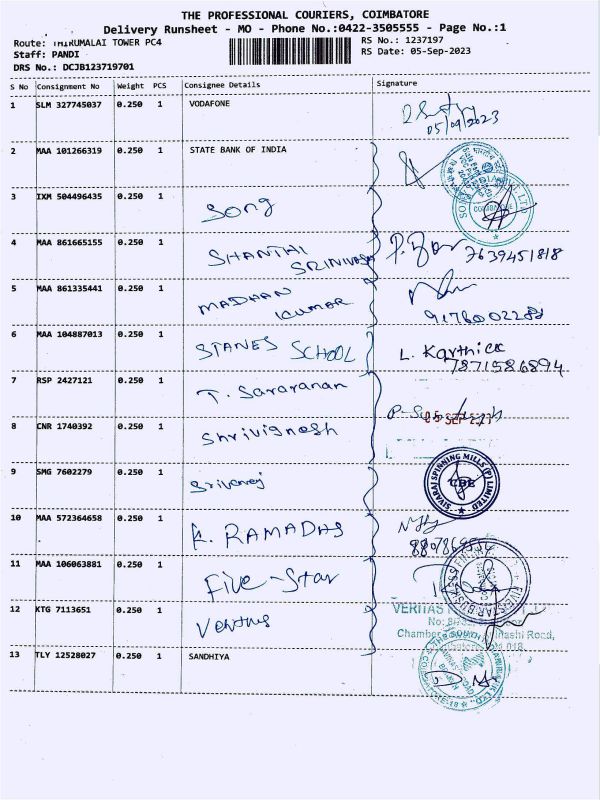 THE PROFESSIONAL COURIERS, COIMBATORE
Delivery Runsheet - MO - Phone No.:0422-3505555 - Page No.:1
Route: THIRUMALAI TOWER PC4
RS No.: 1237197
Staff: PANDI
RS Date: 05-Sep-2023
DRS No.: DCJB123719701
S No Consignment No Weight PCS Consignee Details Signature
1 SLM 327745037 0.250 1 VODAFONE
05/09/2023
2 MAA 101266319 0.250 1 STATE BANK OF INDIA
3 IXM 504496435 0.250 1 Song
4 MAA 861665155 0.250 1 SHANTHI SRINIVASA 7639451818
5 MAA 861335441 0.250 1 MADHAN KUMAR
6 MAA 104887013 0.250 1 STANES SCHOOL L. Karthick
7871586894
7 RSP 2427121 0.250 1 T. Sararanan
8 CNR 1740392 0.250 1 Shrivignesh
SEP
9 SMG 7602279 0.250 1
SIVARAJ SPINNING MILLS (P) LIMITED
CBE
10 MAA 572364658 0.250 1 K. RAMADAS
11 MAA 106063881 0.250 1 Five-Star
12 KTG 7113651 0.250 1 Veritas
VERITAS
Chamber
Road,
13 TLY 12528027 0.250 1 SANDHIYA